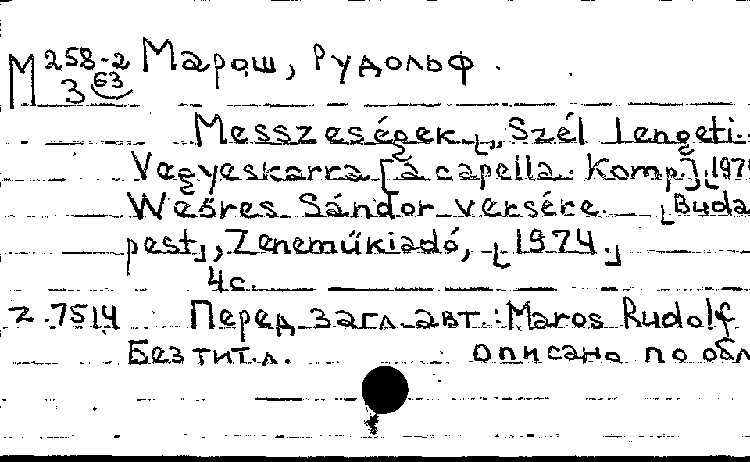 М 258-2 Марош, Рудольф.
3 63
Messzeségek ⌊„Szél lengeti.
Vegyeskarra [à capella. Komp.]⌊197
Weöres Sándor versére. ⌊Buda
pest⌋, Zeneműkiadó, ⌊1974.⌋
4 с.
Z. 7514 Перед загл. авт.: Maros Rudolf
Без тит. л. Описано по обл